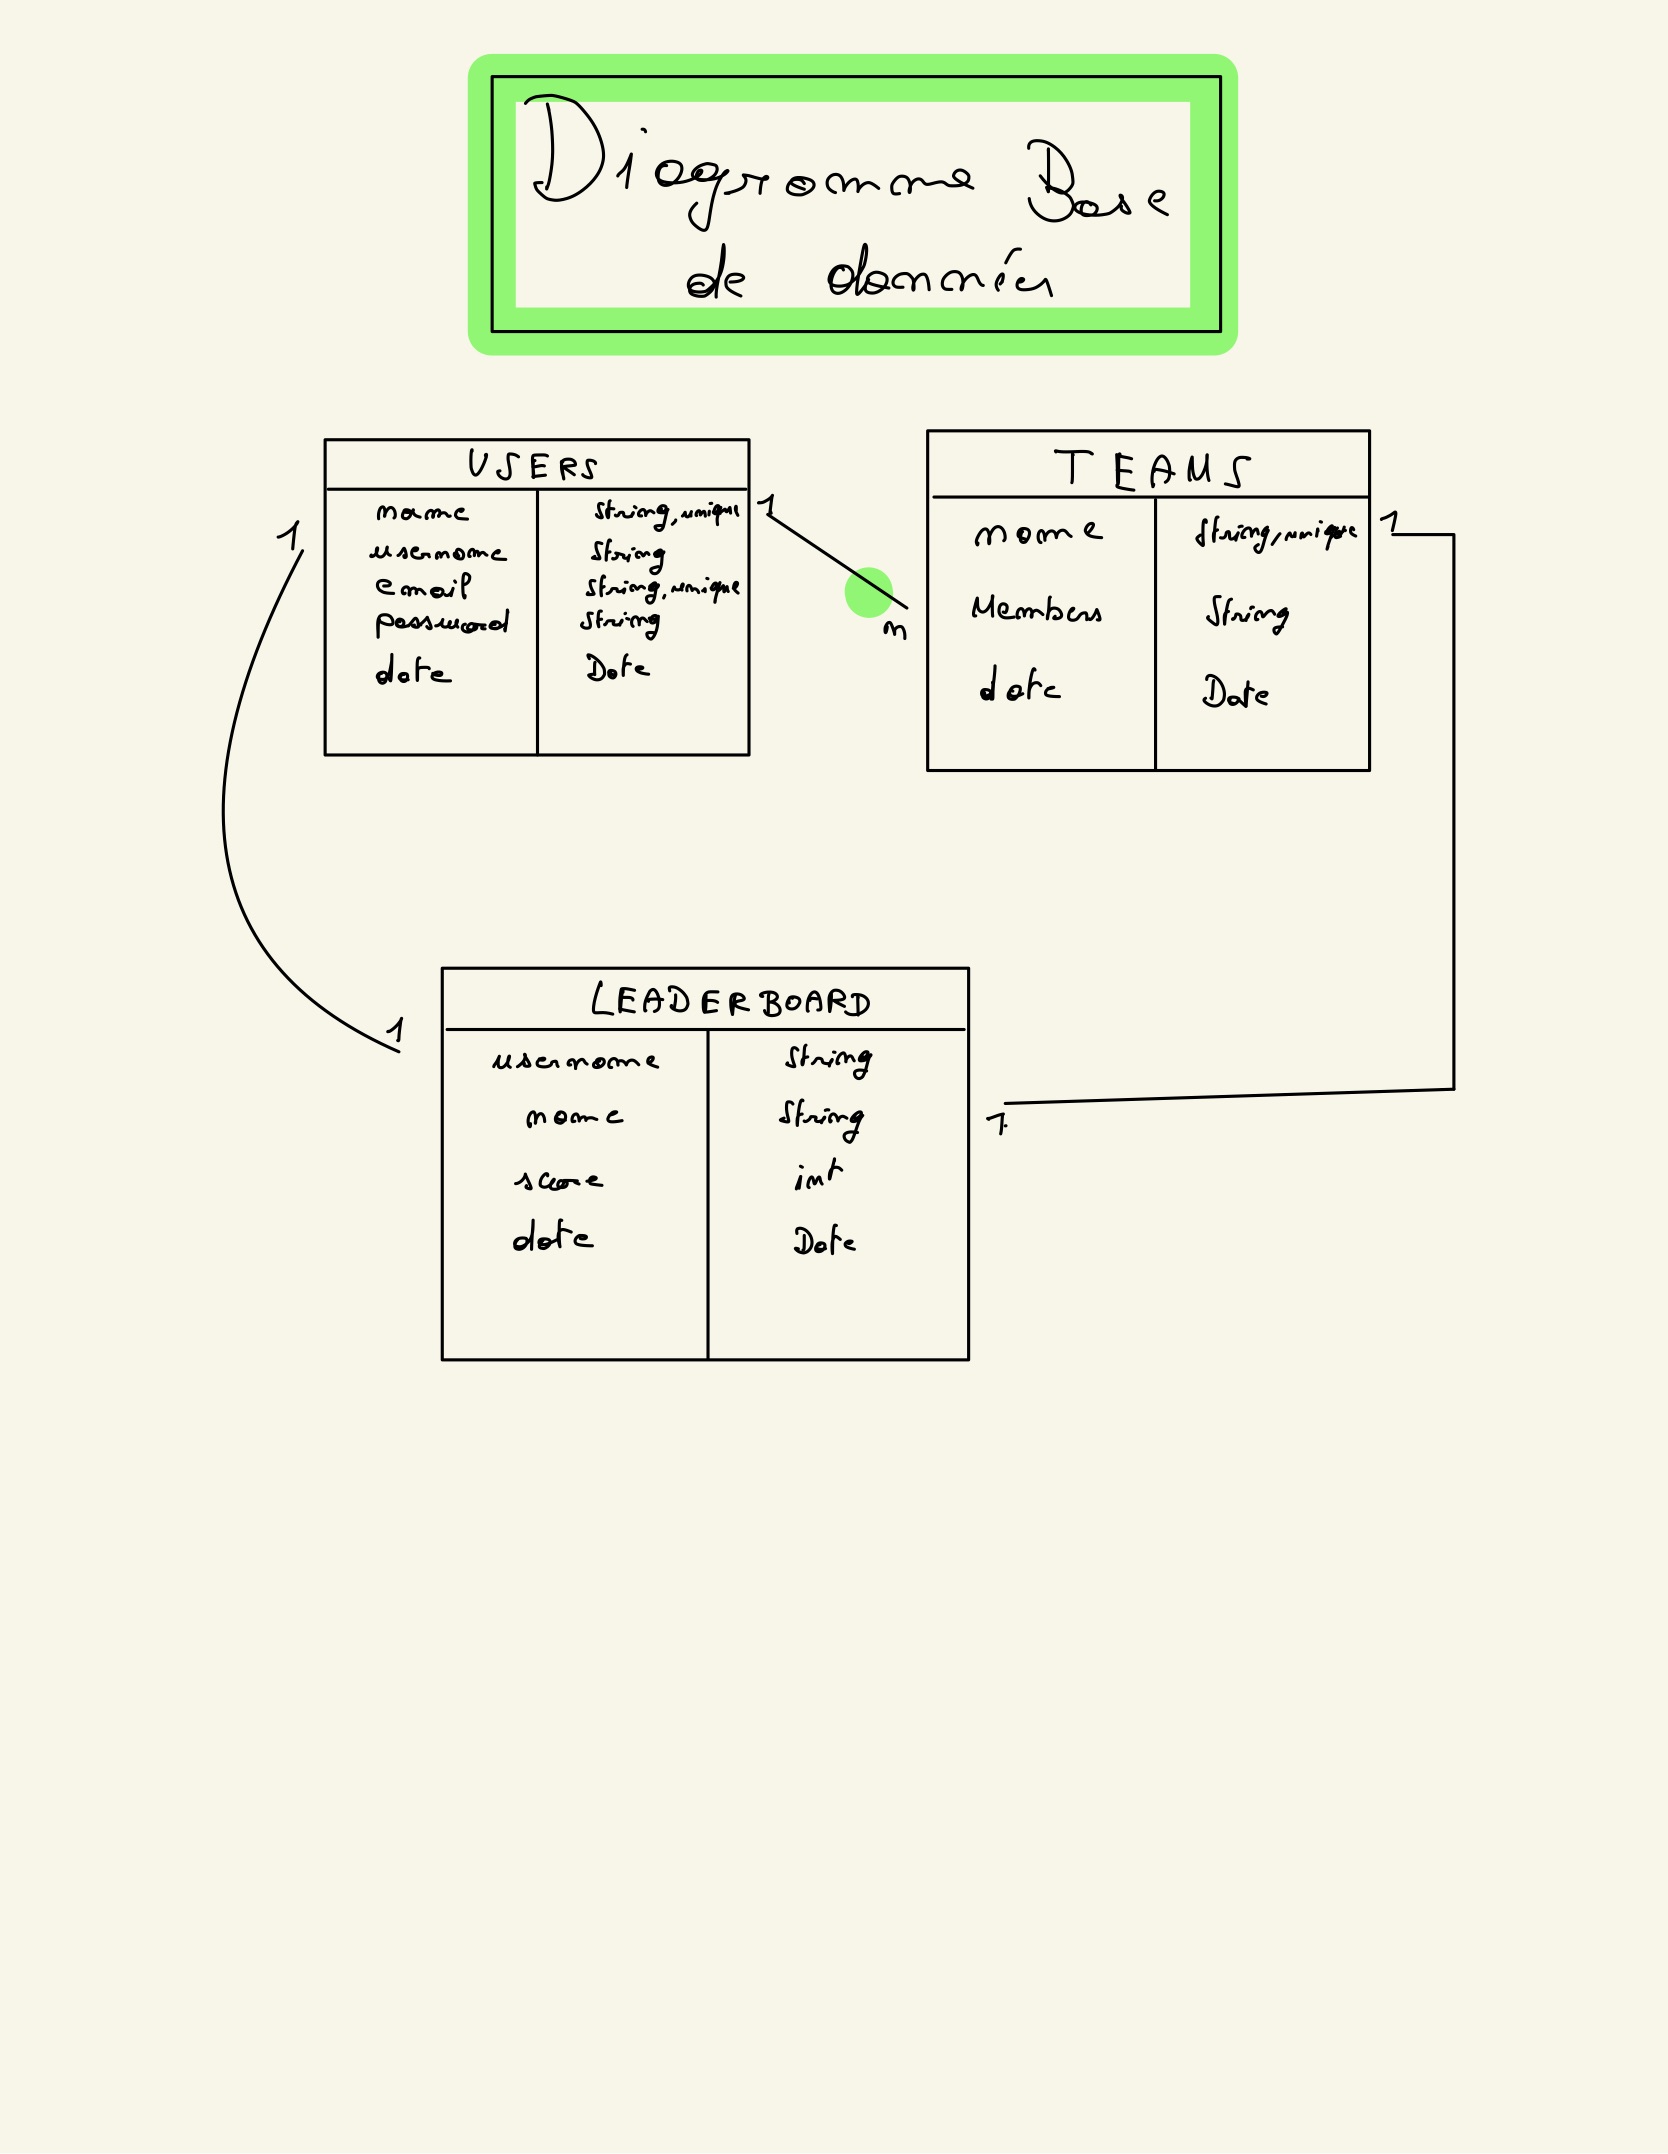 Diagramme Base
de données
USERS
name String, unique
username String
email String, unique
password String
date Date
1
1
n
TEAMS
name String, unique
Members String
date Date
1
1
LEADERBOARD
username String
name String
score int
date Date
1